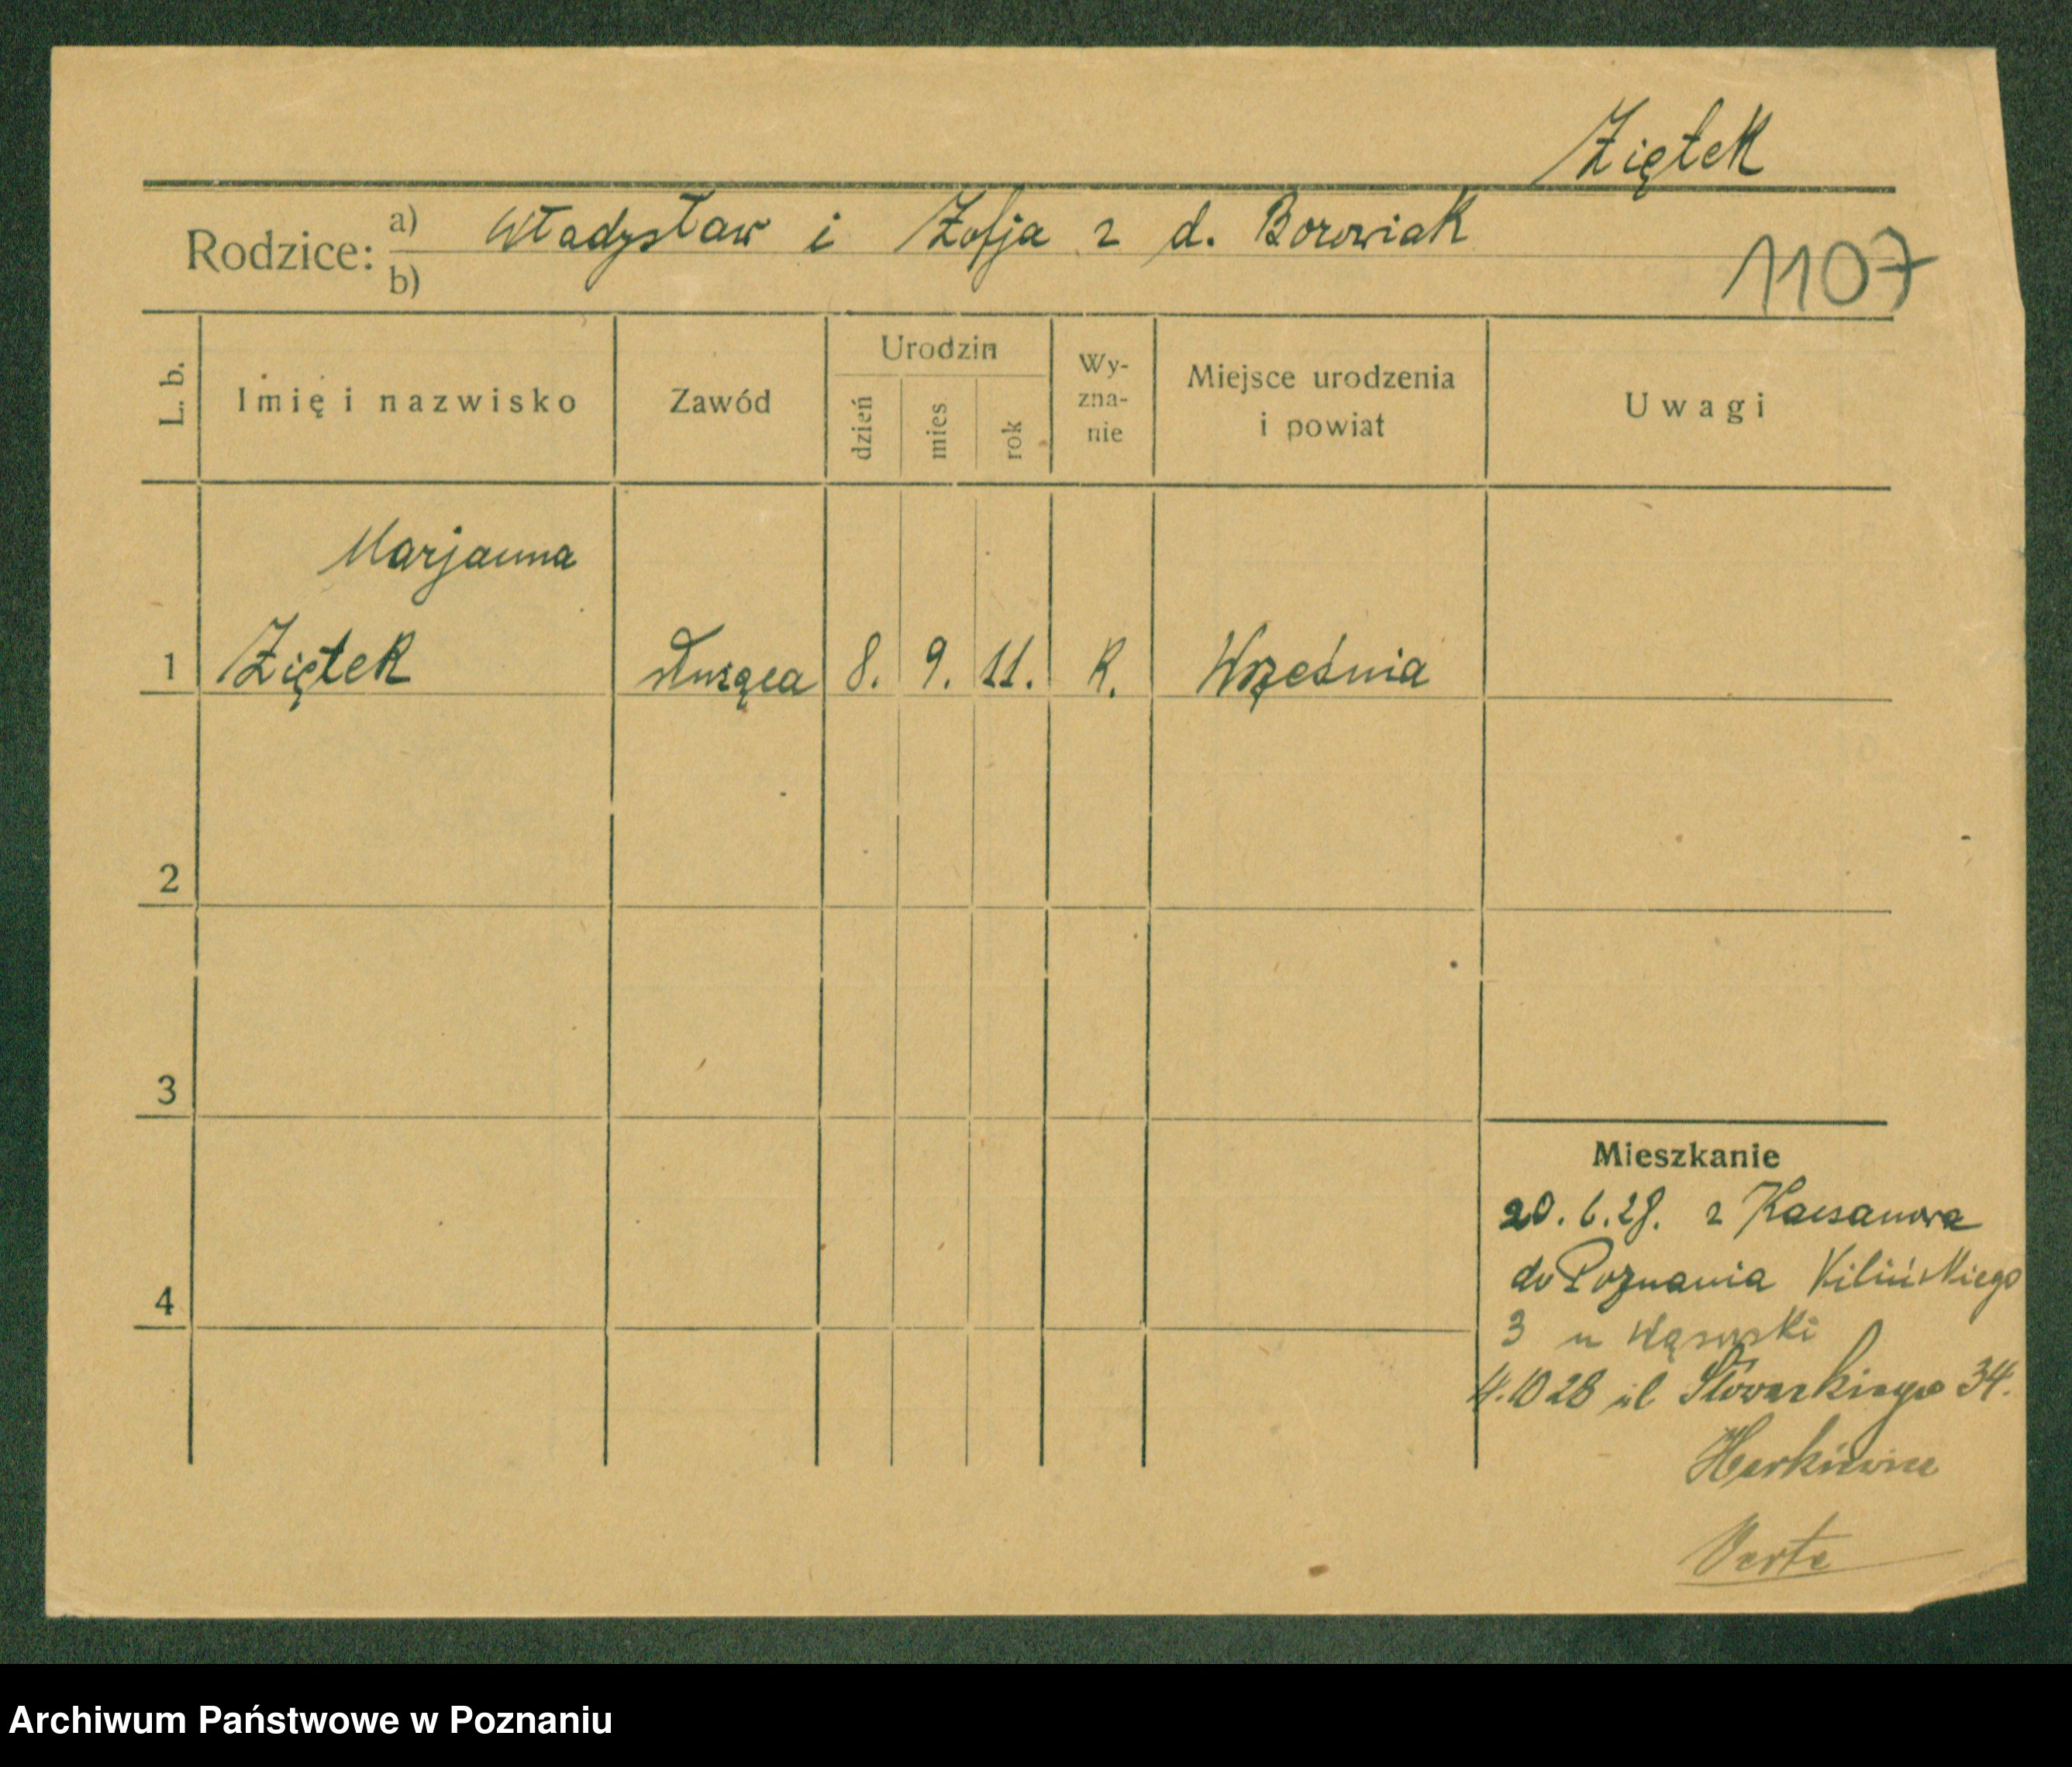 Ziętek
Rodzice: a) Władysław i Zofja z d. Borowiak
b)
1107
L. b.
Imię i nazwisko
Zawód
Urodzin
dzień
mies
rok
Wy-
zna-
nie
Miejsce urodzenia
i powiat
Uwagi
Marjanna
1 Ziętek służąca 8. 9. 11. K. Września
2
3
4
Mieszkanie
20. 6. 28. z Kaczanowa
do Poznania Kilińskiego
3 u Wąsowski
4.10 28 ul Słowackiego 34.
Verte
Archiwum Państwowe w Poznaniu